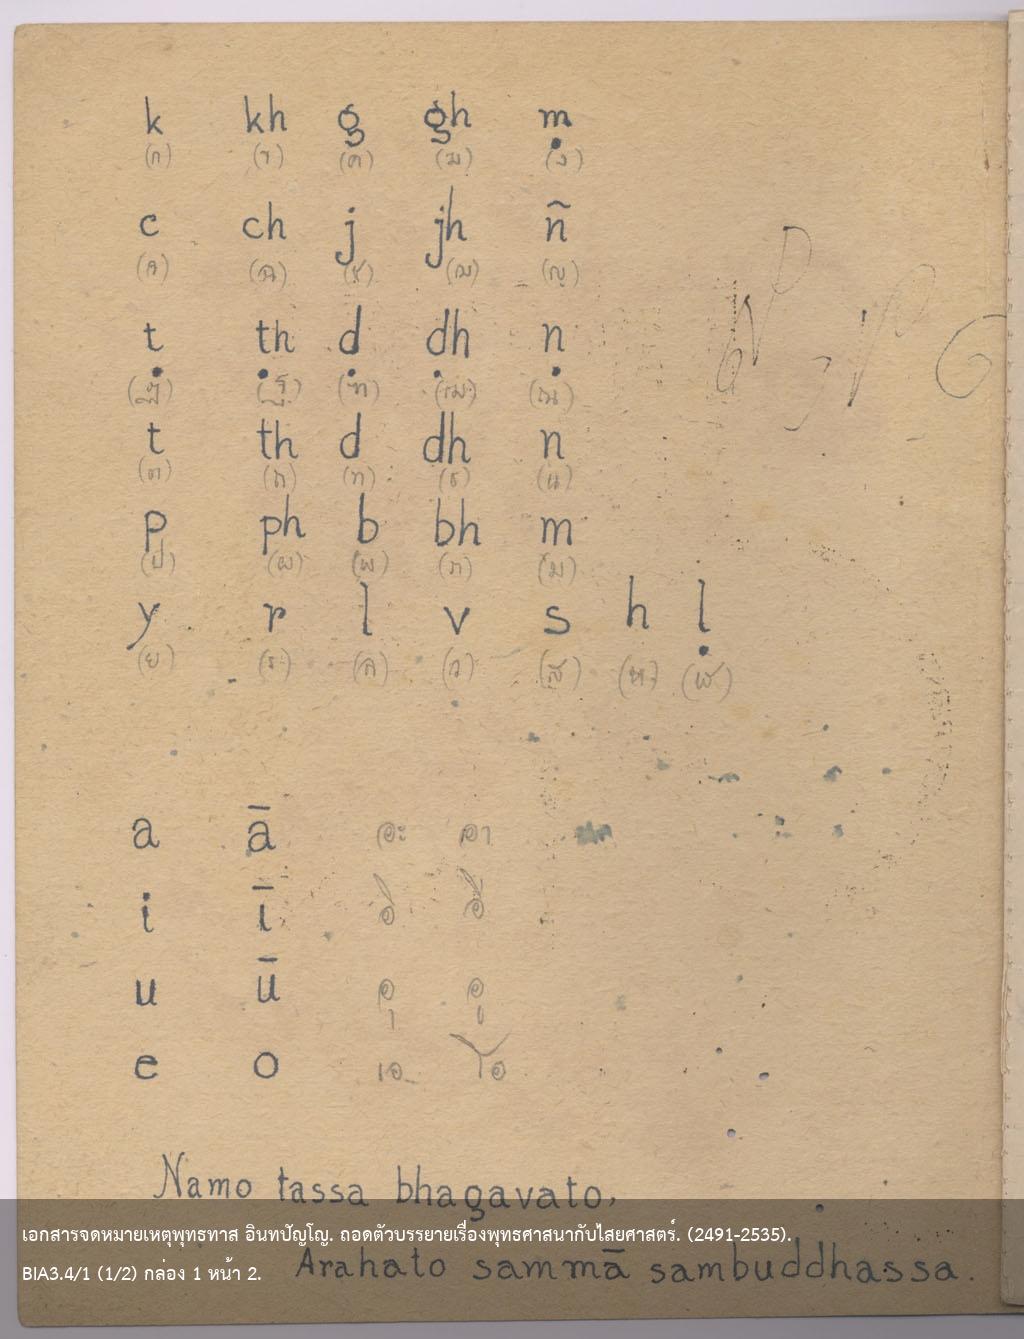 k kh g gh ṃ
(ก) (ข) (ค) (ฆ) (ง)
c ch j jh ñ
(จ) (ฉ) (ช) (ฌ) (ญ)
ṭ ṭh ḍ ḍh ṇ
(ฏ) (ฐ) (ฑ) (ฒ) (ณ)
t th d dh n
(ต) (ถ) (ท) (ธ) (น)
p ph b bh m
(ป) (ผ) (พ) (ภ) (ม)
y r l v s h ḷ
(ย) (ร) (ล) (ว) (ส) (ห) (ฬ)
a ā อะ อา
i ī อิ อี
u ū อุ อู
e o เอ โอ
Namo tassa bhagavato,
เอกสารจดหมายเหตุพุทธทาส อินทปัญโญ. ถอดตัวบรรยายเรื่องพุทธศาสนากับไสยศาสตร์. (2491-2535).
BIA3.4/1 (1/2) กล่อง 1 หน้า 2.
Arahato sammā sambuddhassa.